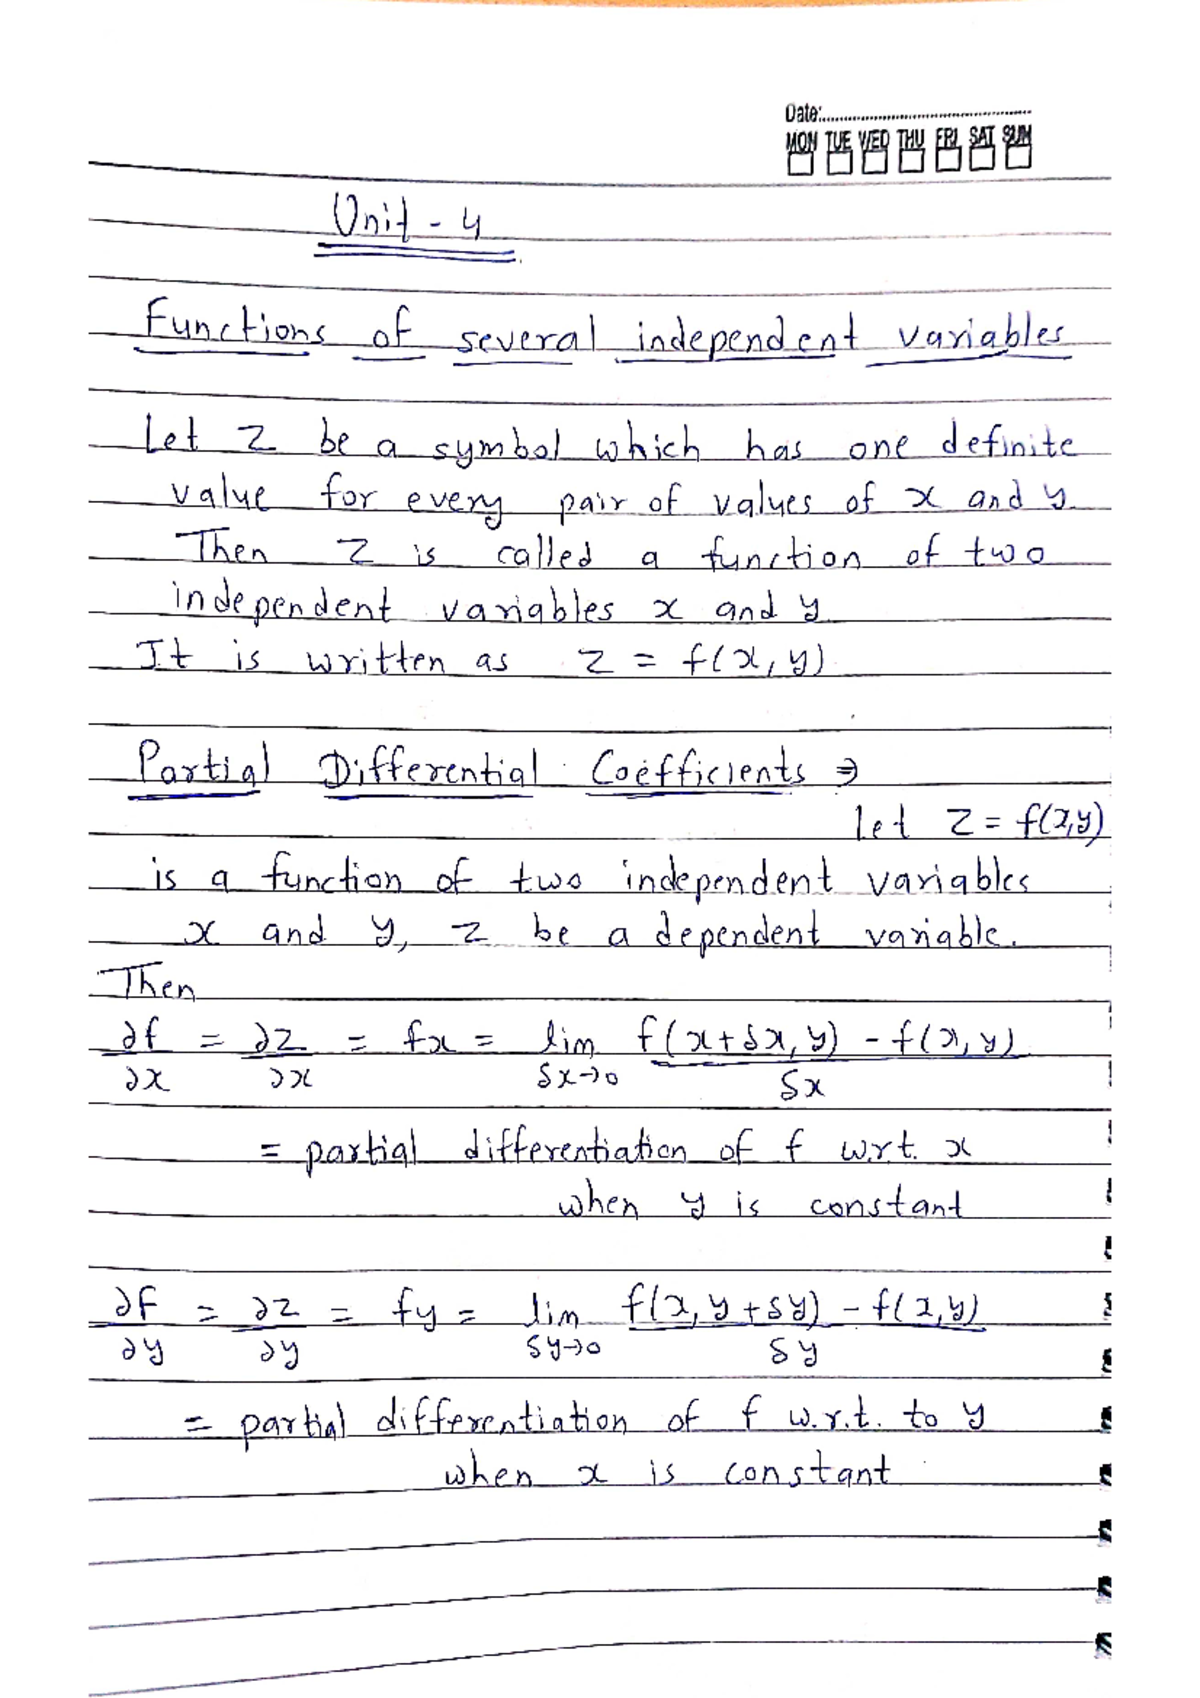 Date:
MON TUE WED THU FRI SAT SUN
Unit - 4
Functions of several independent variables
Let z be a symbol which has one definite
value for every pair of values of x and y.
Then z is called a function of two
independent variables x and y
It is written as z = f(x, y)
Partial Differential Coefficients ⇒
let z = f(x,y)
is a function of two independent variables
x and y, z be a dependent variable.
Then
∂f/∂x = ∂z/∂x = fx = lim δx→0 f(x+δx, y) - f(x, y) / δx
= partial differentiation of f w.r.t. x
when y is constant
∂f/∂y = ∂z/∂y = fy = lim δy→0 f(x, y+δy) - f(x,y) / δy
= partial differentiation of f w.r.t. to y
when x is constant